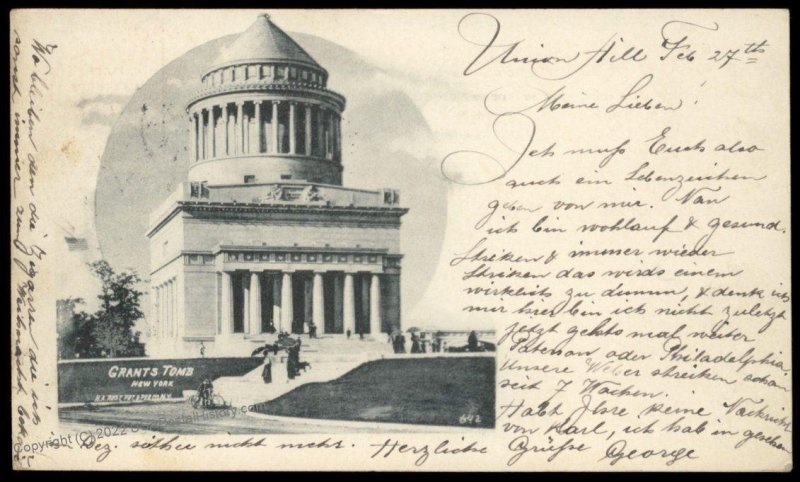 Union Hill Feb 27th
Meine Lieben!
Ich muß Euch also
auch ein Lebenzeichen
geben von mir. Nun
ich bin wohlauf & gesund.
Streiken & immer wieder
Streiken das wirds einem
wirklich zu dumm, & denk ich
mir hier bin ich nicht zuletzt
jetzt gehts mal weiter
Paterson oder Philadelphia.
Unsere Weber streiken schon
seit 7 Wochen.
Habt Ihr keine Nachricht
von Karl, ich hab in gesehen
Dez. seither nicht mehr. Herzliche Grüße George
Wo bleiben den die die ich
sonst immer zum bekam
GRANTS TOMB
NEW YORK
642
Copyright © 2022